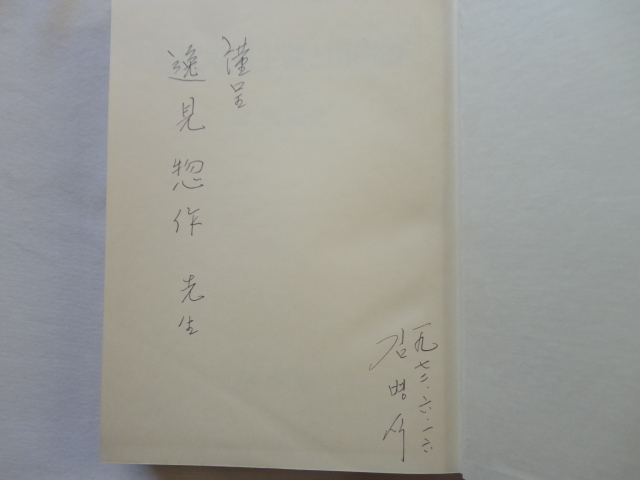 謹呈
逸見惣作 先生
一九七二.六.一六
김병서